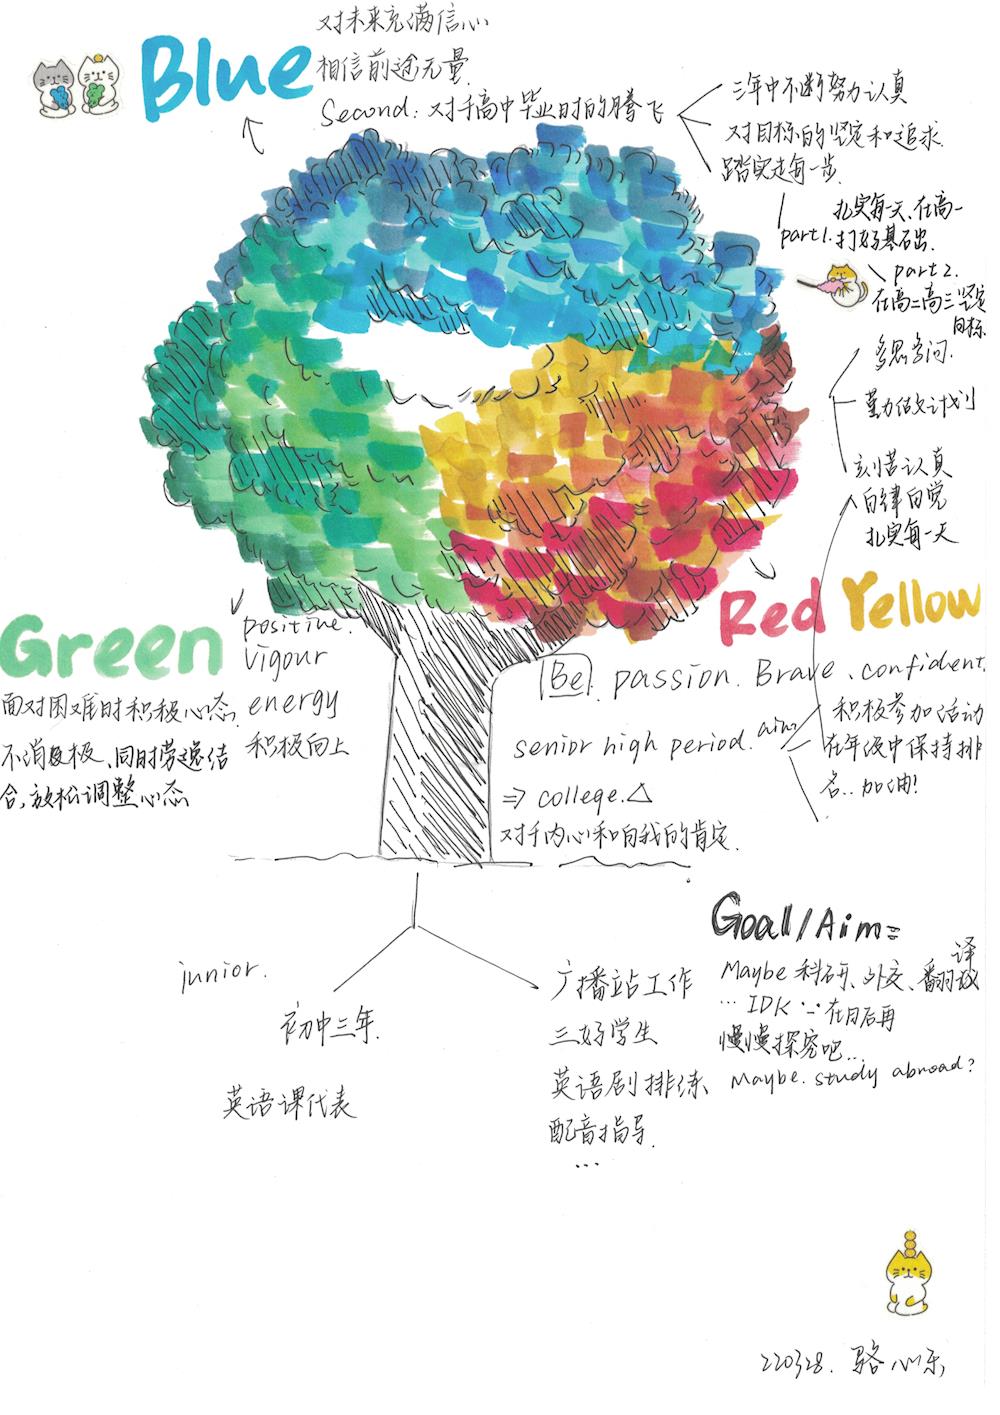 Blue
对未来充满信心
相信前途无量
Second: 对于高中毕业时的腾飞
三年中不断努力认真
对目标的坚定和追求
踏实走每一步
part1. 扎实每一天、在高一
打好基础.
part 2.
在高二高三坚定
目标
多思多问.
勤力做好计划
刻苦认真
自律自觉
扎实每一天
Green
positive.
vigour
energy
积极向上
面对困难时积极心态.
不消极、同时劳逸结
合,放松调整心态
Red Yellow
Be. passion. Brave、confident.
senior high period. aim
⇒ college.△
对于内心和自我的肯定.
积极参加活动
在年级中保持排
名..加油!
junior.
初中三年.
英语课代表
广播站工作
三好学生
英语剧排练、
配音指导.
...
Goal/Aim=
Maybe 科研、外交、翻译
... IDK 在日后再
慢慢探究吧...
Maybe. study abroad?
220328. 骆心乐